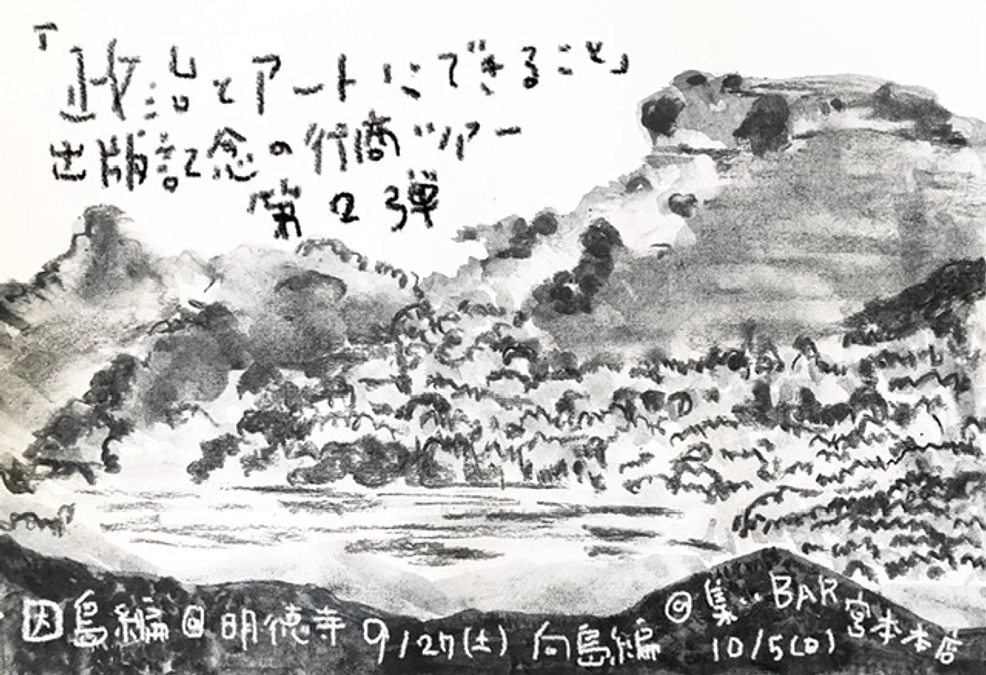 「政治とアートにできること」
出版記念の行商ツアー
第2弾
因島編@明徳寺 9/27(土) 向島編@集いBAR宮本本店
10/5(日)